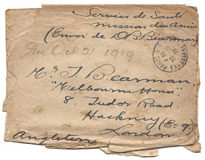 Service de Santé
mission des Amis
(Envoi de D.B. Bearman)
Oct 2 1919
Mr. T. Bearman
"Melbourne House"
8 Tudor Road
Hackney (E.9)
London
Angleterre